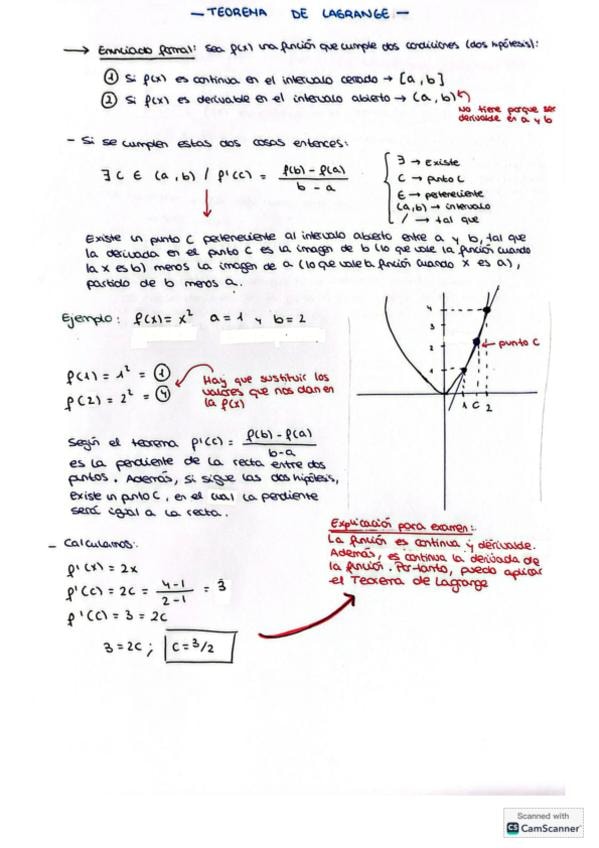 — TEOREMA DE LAGRANGE —
→ Enunciado formal: Sea f(x) una función que cumple dos condiciones (dos hipótesis):
① Si f(x) es continua en el intervalo cerrado → [a, b]
② Si f(x) es derivable en el intervalo abierto → (a, b)
No tiene porque ser
derivable en a y b
- Si se cumplen estas dos cosas entonces:
∃ C ∈ (a, b) / f'(c) = f(b) - f(a) / b - a
∃ → Existe
C → punto C
∈ → perteneciente
(a, b) → intervalo
/ → tal que
Existe un punto C perteneciente al intervalo abierto entre a y b, tal que
la derivada en el punto C es la imagen de b (lo que vale la función cuando
la x es b) menos la imagen de a (lo que vale la función cuando x es a),
partido de b menos a.
Ejemplo: f(x) = x² a = 1 y b = 2
f(1) = 1² = ①
f(2) = 2² = ④
Hay que sustituir los
valores que nos dan en
la f(x)
4
3
2
1
← punto C
1 C 2
Según el teorema f'(c) = f(b) - f(a) / b - a
es la pendiente de la recta entre dos
puntos. Además, si sigue las dos hipótesis,
existe un punto C, en el cual la pendiente
será igual a la recta.
Explicación para examen:
La función es continua y derivable.
Además, es continua la derivada de
la función. Por tanto, puedo aplicar
el Teorema de Lagrange
- Calculamos:
f'(x) = 2x
f'(c) = 2c = 4-1 / 2-1 = 3
f'(c) = 3 = 2c
3 = 2c ; c = 3/2
Scanned with
CS CamScanner